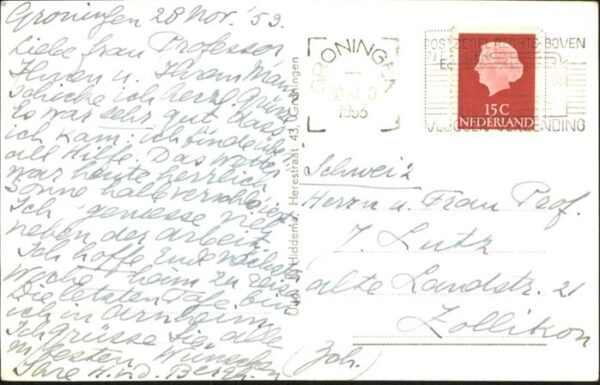 Groningen 28 Nov. '53
Liebe frau Professor
Ihnen u. Ihrem Mann
schicke ich herzl. Grüsse
Es war sehr gut dass
ich kam: ich finde über-
all Hilfe. Das wetter
war heute herrlich
Sonne
Ich geniesse viel
neben der arbeit
Ich hoffe Ende nächster
Woche heim zu reisen
Die letzten Tage bin
ich in Arnheim
Ich grüsse Sie alle
m besten Wünschen
Ihre H.v.d. Bergh
Uitg. Hiddema, Herestraat 43, Groningen
GRONINGEN
1953
POSTZEGEL RECHTS BOVEN
VLUGGER VERZENDING
15 C
NEDERLAND
Schweiz
Herrn u. Frau Prof.
J. Lutz
alte Landstr. 21
Zollikon
(Zch.)